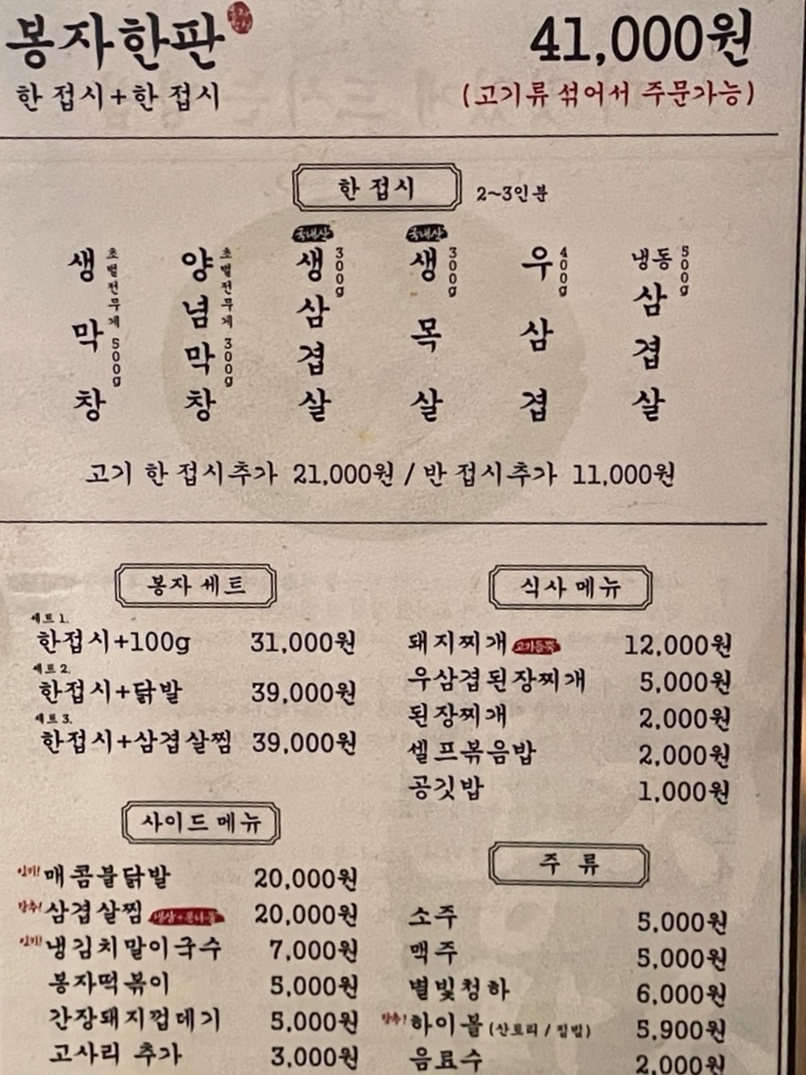 봉자한판 41,000원
한 접시+한 접시 (고기류 섞어서 주문가능)
한 접시 2~3인분
생막창 초벌전무게 500g
양념막창 초벌전무게 300g
국내산 생삼겹살 300g
국내산 생목살 300g
우삼겹 400g
냉동삼겹살 500g
고기 한 접시추가 21,000원 / 반 접시추가 11,000원
봉자세트
세트 1.
한접시+100g 31,000원
세트 2.
한접시+닭발 39,000원
세트 3.
한접시+삼겹살찜 39,000원
사이드 메뉴
인기! 매콤불닭발 20,000원
강추! 삼겹살찜 20,000원
인기! 냉김치말이국수 7,000원
봉자떡볶이 5,000원
간장돼지껍데기 5,000원
고사리 추가 3,000원
식사 메뉴
돼지찌개 고기듬뿍 12,000원
우삼겹된장찌개 5,000원
된장찌개 2,000원
셀프볶음밥 2,000원
공깃밥 1,000원
주 류
소주 5,000원
맥주 5,000원
별빛청하 6,000원
강추! 하이볼 (산토리 / 짐빔) 5,900원
음료수 2,000원